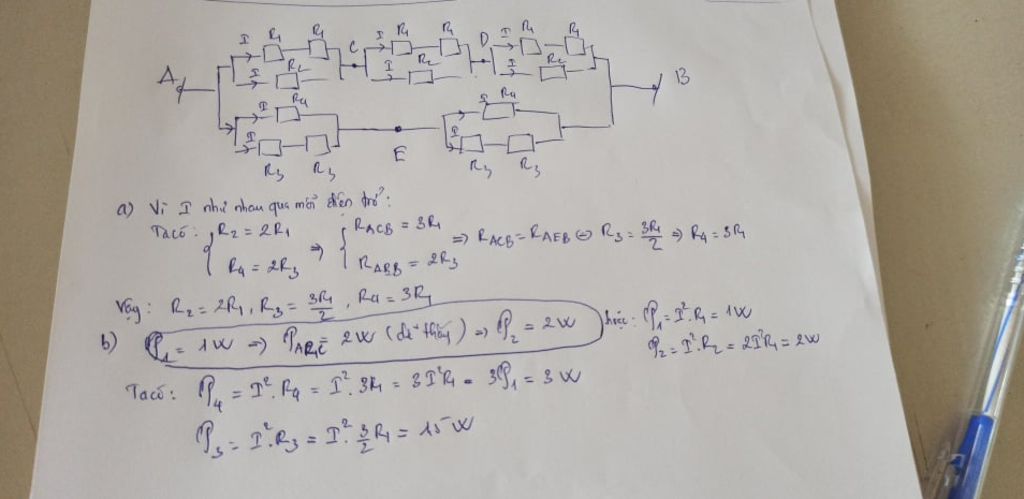 I R₁ R₁ C I R₁ R₁ D I R₁ R₁
A I R₂ I R₂ I R₂ B
I R₄ I R₄
I R₃ R₃ E I R₃ R₃
a) Vì I như nhau qua mỗi điện trở:
Ta có: { R₂ = 2R₁ R₄ = 2R₃ => { R_ACB = 3R₁ R_AEB = 2R₃ => R_ACB = R_AEB <=> R₃ = 3R₁/2 => R₄ = 3R₁
Vậy: R₂ = 2R₁, R₃ = 3R₁/2, R₄ = 3R₁
b) P₁ = 1W => P_AR₁C = 2W (dễ thấy) => P₂ = 2W hoặc: P₁ = I².R₁ = 1W
P₂ = I².R₂ = 2I²R₁ = 2W
Ta có: P₄ = I².R₄ = I².3R₁ = 3I²R₁ = 3P₁ = 3W
P₃ = I².R₃ = I².3/2R₁ = 15W